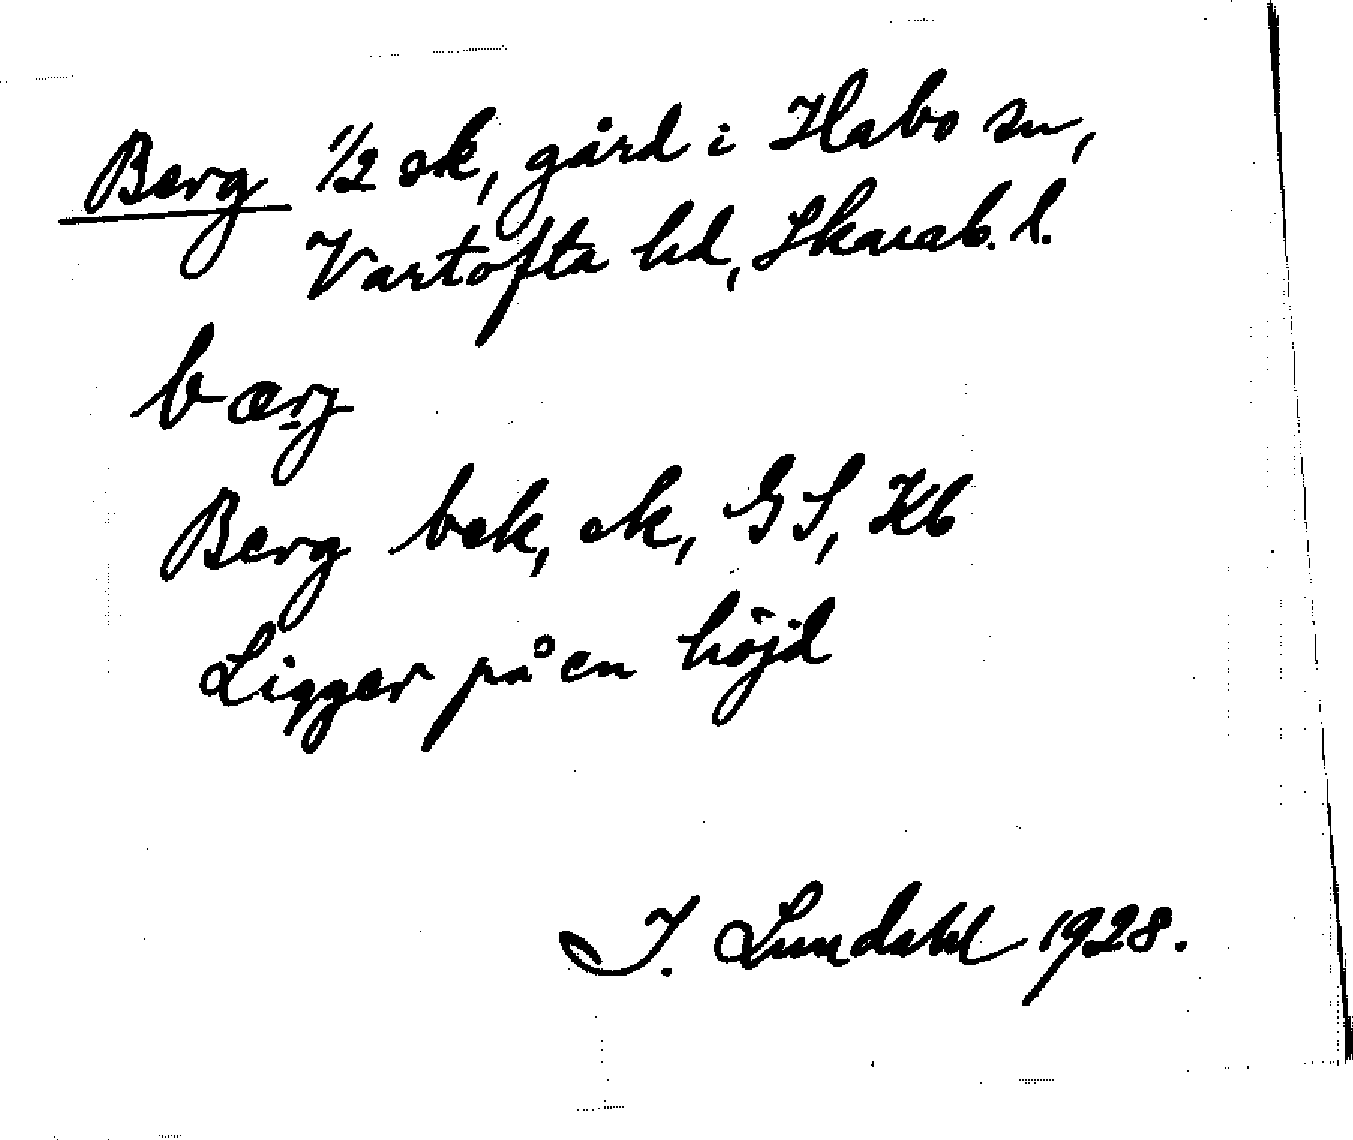 Berg 1/2 sk, gård i Habo sn,
Vartofta hd, Skarab. l.
bærj
Berg bek, ek, GS, Kb
Ligger på en höjd
I. Lundahl 1928.